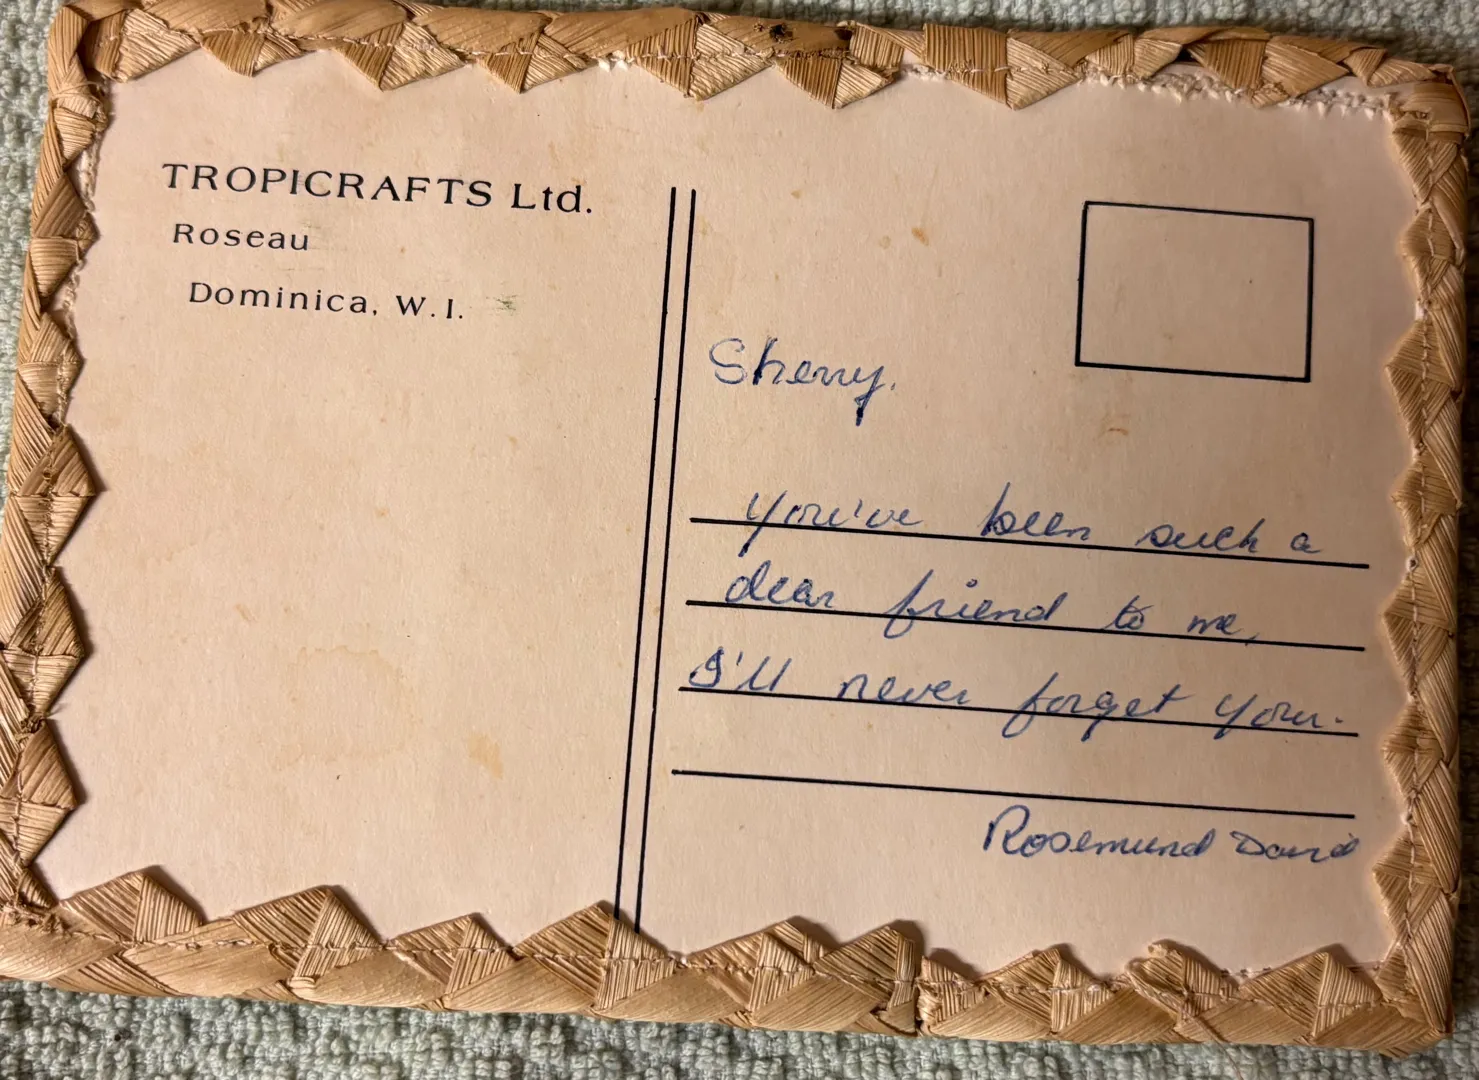 TROPICRAFTS Ltd.
Roseau
Dominica, W. I.
Sherry.
You've been such a
dear friend to me,
I'll never forget you.
Rosemund David